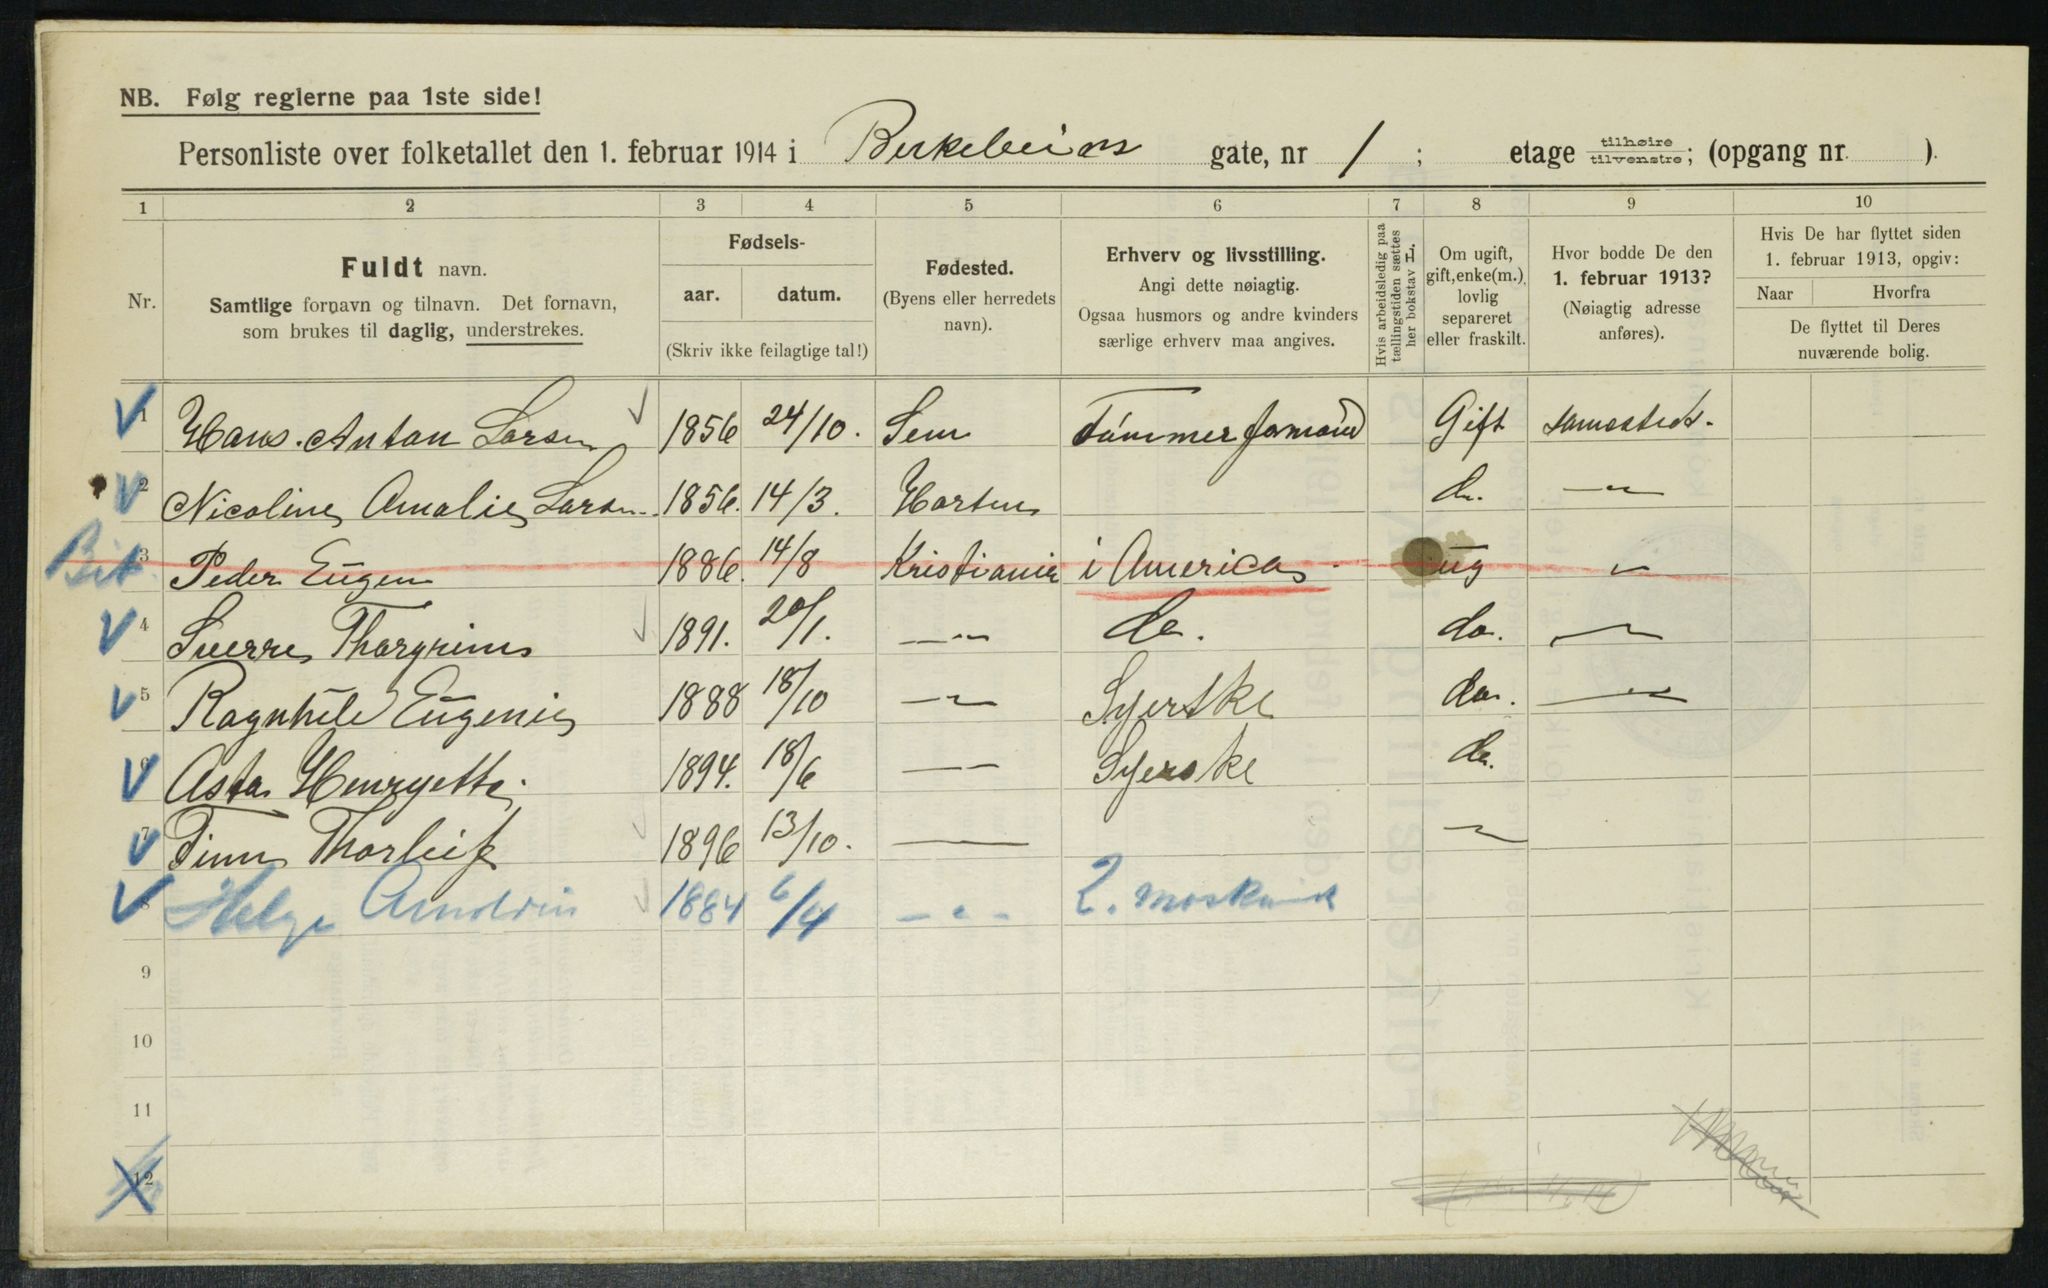 NB. Følg reglerne paa 1ste side!
Personliste over folketallet den 1. februar 1914 i Birkebeiner gate, nr 1 ; etage tilhøire tilvenstre; (opgang nr. ).
1 2 3 4 5 6 7 8 9 10
Nr.
Fuldt navn.
Samtlige fornavn og tilnavn. Det fornavn,
som brukes til daglig, understrekes.
Fødsels-
aar. datum.
(Skriv ikke feilagtige tal!)
Fødested.
(Byens eller herredets
navn).
Erhverv og livsstilling.
Angi dette nøiagtig.
Ogsaa husmors og andre kvinders
særlige erhverv maa angives.
Hvis arbeidsledig paa
tællingstiden sættes
her bokstav L.
Om ugift,
gift, enke(m.),
lovlig
separeret
eller fraskilt.
Hvor bodde De den
1. februar 1913?
(Nøiagtig adresse
anføres).
Hvis De har flyttet siden
1. februar 1913, opgiv:
Naar Hvorfra
De flyttet til Deres
nuværende bolig.
1 Hans Anton Larsen 1856 24/10. Sem Tømmerformand Gift samesteds.
2 Nicoline Amalie Larsen 1856. 14/3. Horten do. —"—
3 Peder Eugen 1886. 14/8 Kristiania i America ug "
4 Sverre Thorgrim 1891. 20/1. —"— do. do. —"—
5 Ragnhild Eugenie 1888 18/10 —"— Syerske do. —"—
6 Asta Henryette 1894. 18/6 —"— Syerske do.
7 Finn Thorleif 1896 13/10. — —"—
8 Helge Arnoldin 1884 6/4 —"— 2. maskinist
9
10
11
12